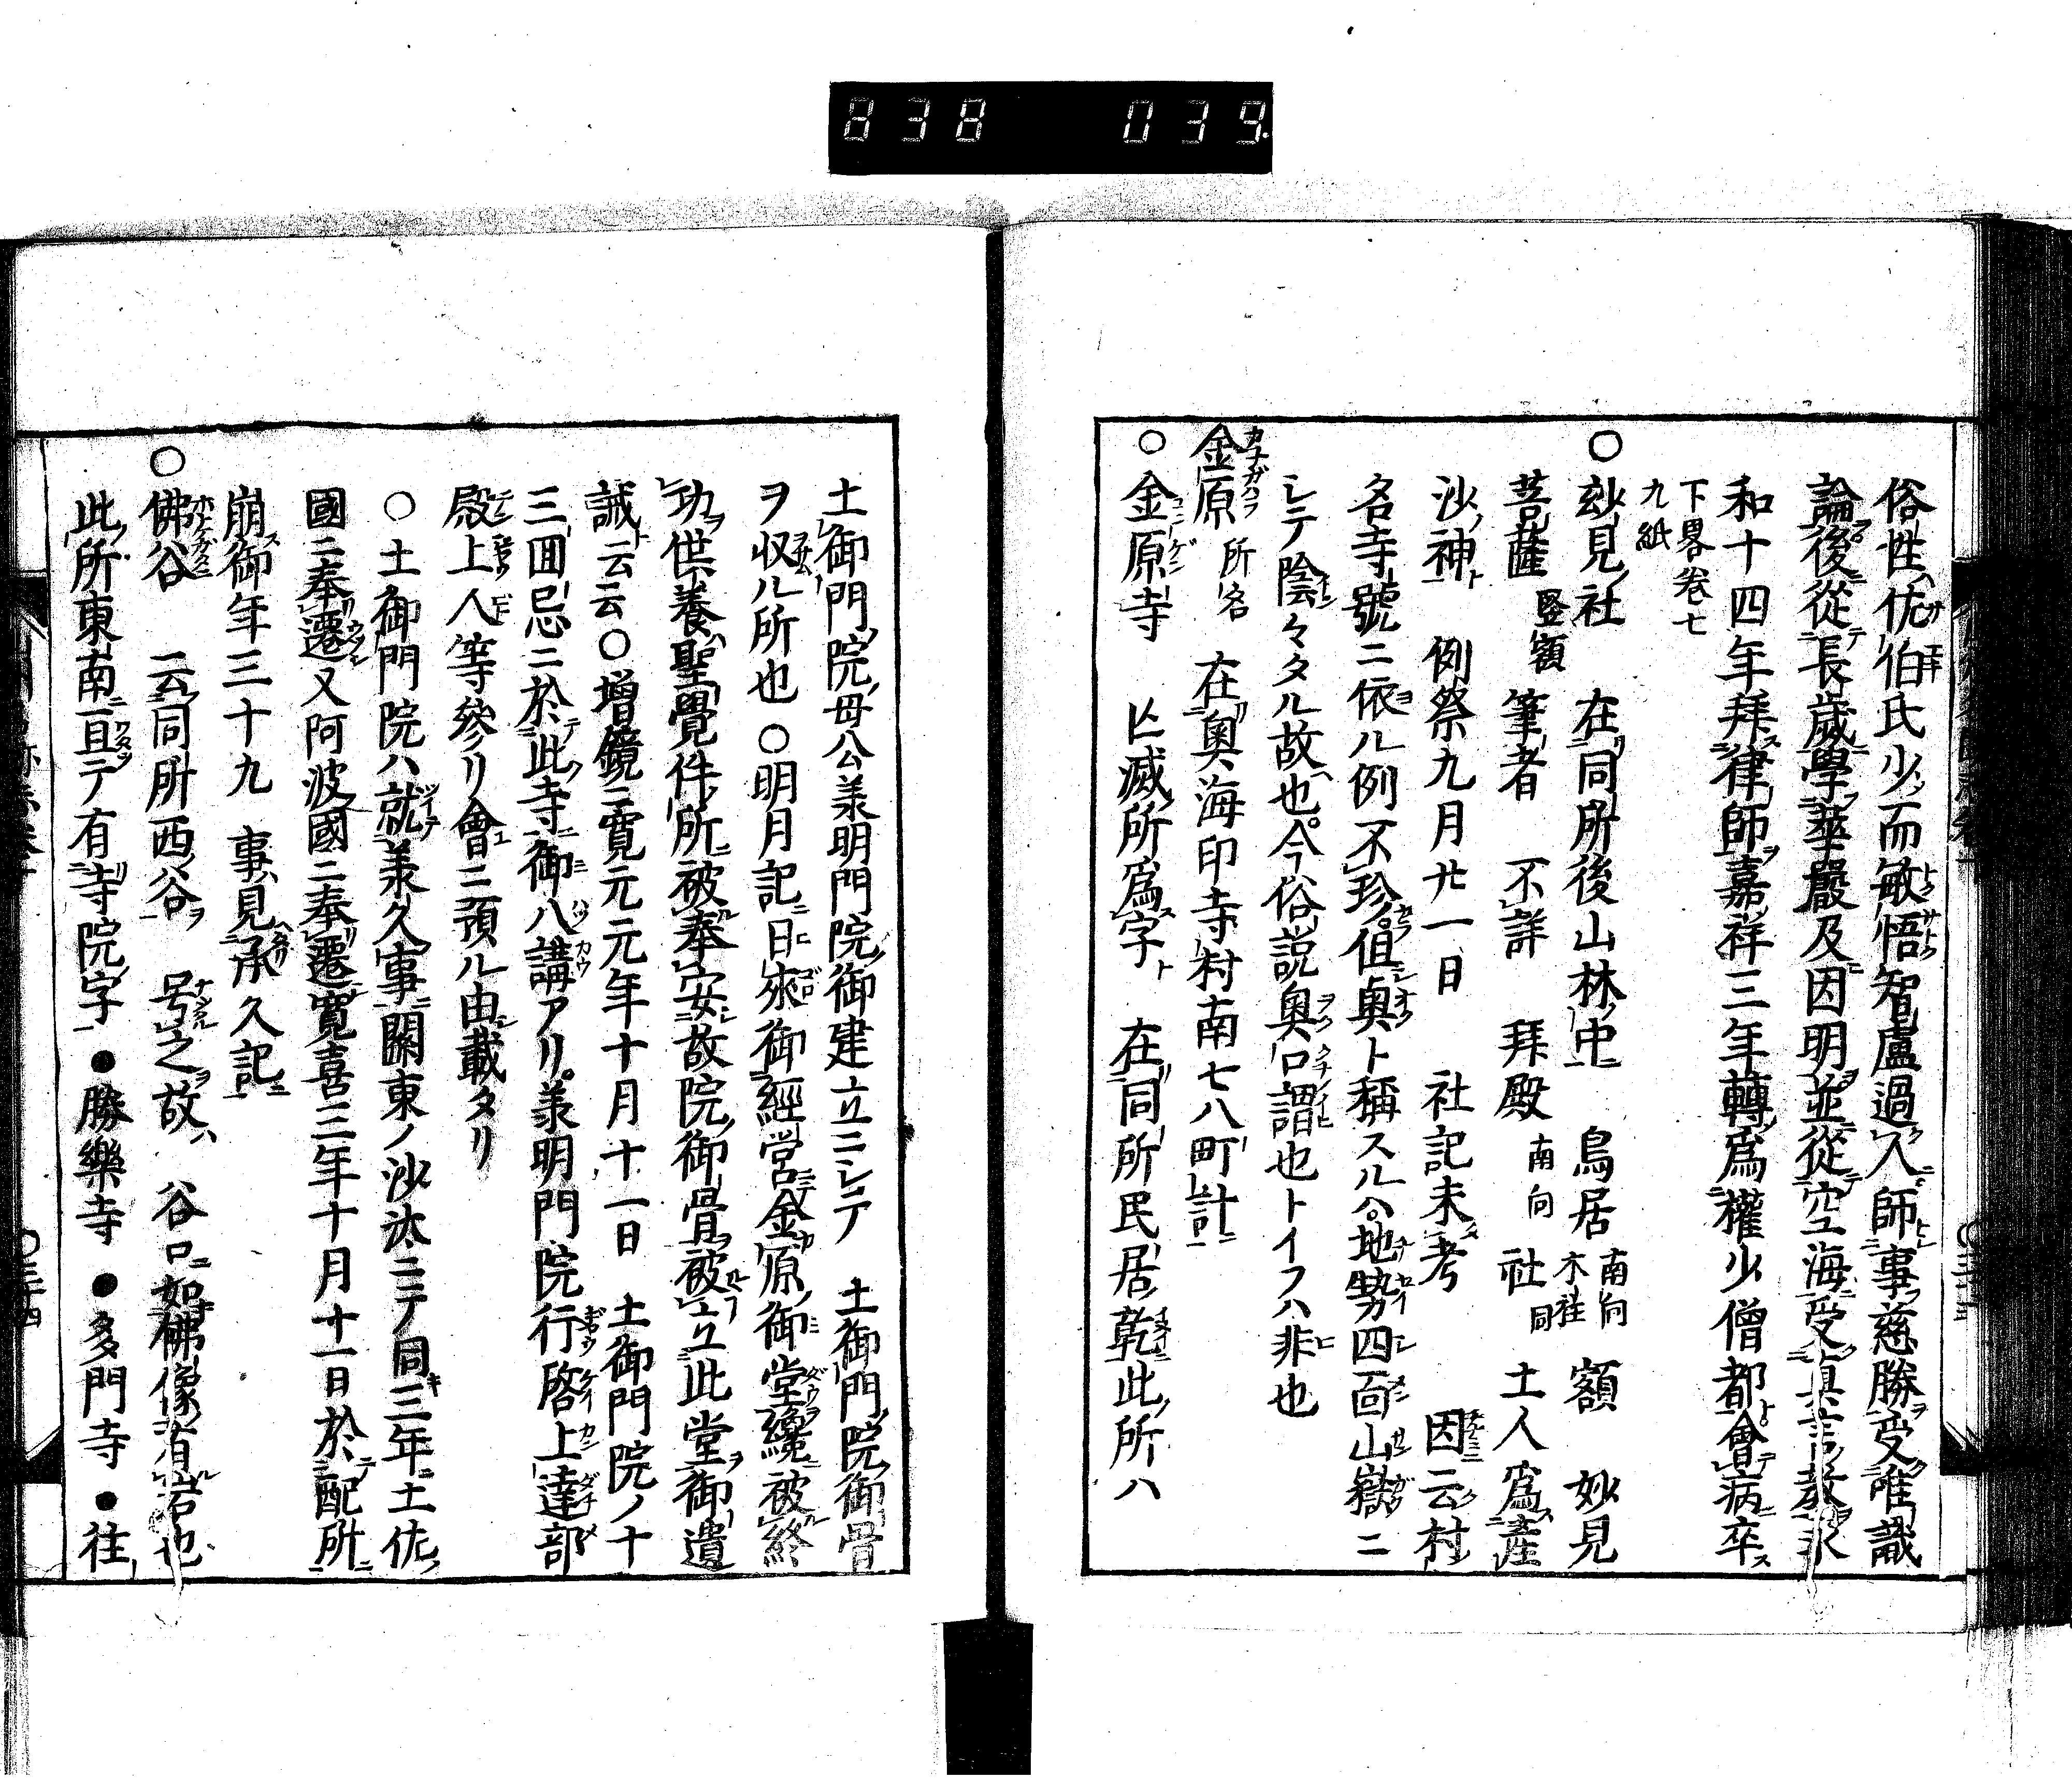 838 039
俗性佐伯氏少而敏悟智盧過人師事慈勝受唯識
論後從長歲學華嚴及因明並從空海受真言教承
和十四年拜律師嘉祥三年轉爲權少僧都會病卒
下畧卷七
九紙
○玅見社 在同所後山林中 鳥居 南向 木柱 額 妙見
菩薩 竪額 筆者 不詳 拜殿 南向 社 同 土人爲產
沙神 例祭九月廿一日 社記未考 因云村
名寺號ニ依ル例不珍但奥ト稱スルハ地勢四面山嶽ニ
シテ陰々タル故也今俗說奥口謂也トイフハ非也
金原 所名 在奥海印寺村南七八町計
○金原寺 亡滅所爲字 在同所民居乾此所ハ
土御門院母公羕明門院御建立ニシテ 土御門院御骨
ヲ収ル所也○明月記曰來御經営金原御堂纔被終
功供養聖覺件所被奉安故院御骨被立此堂御遺
誡云云○增鏡ニ寬元元年十月十一日 土御門院ノ十
三囬忌ニ於此寺御八講アリ羕明門院行啓上達部
殿上人等參リ會ニ預ル由載タリ
○土御門院ハ就羕久事關東ノ沙汰ニテ同三年土佐
國ニ奉遷又阿波國ニ奉遷寬喜三年十月十一日於配所
崩御年三十九 事見承久記
○佛谷 云同所西谷 号之故ハ 谷口如佛像有岩也
此所東南亘テ有寺院字 ●勝樂寺 ●多門寺 ●往